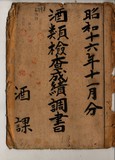 昭和十六年十一月分
酒類檢査成績調書
酒課